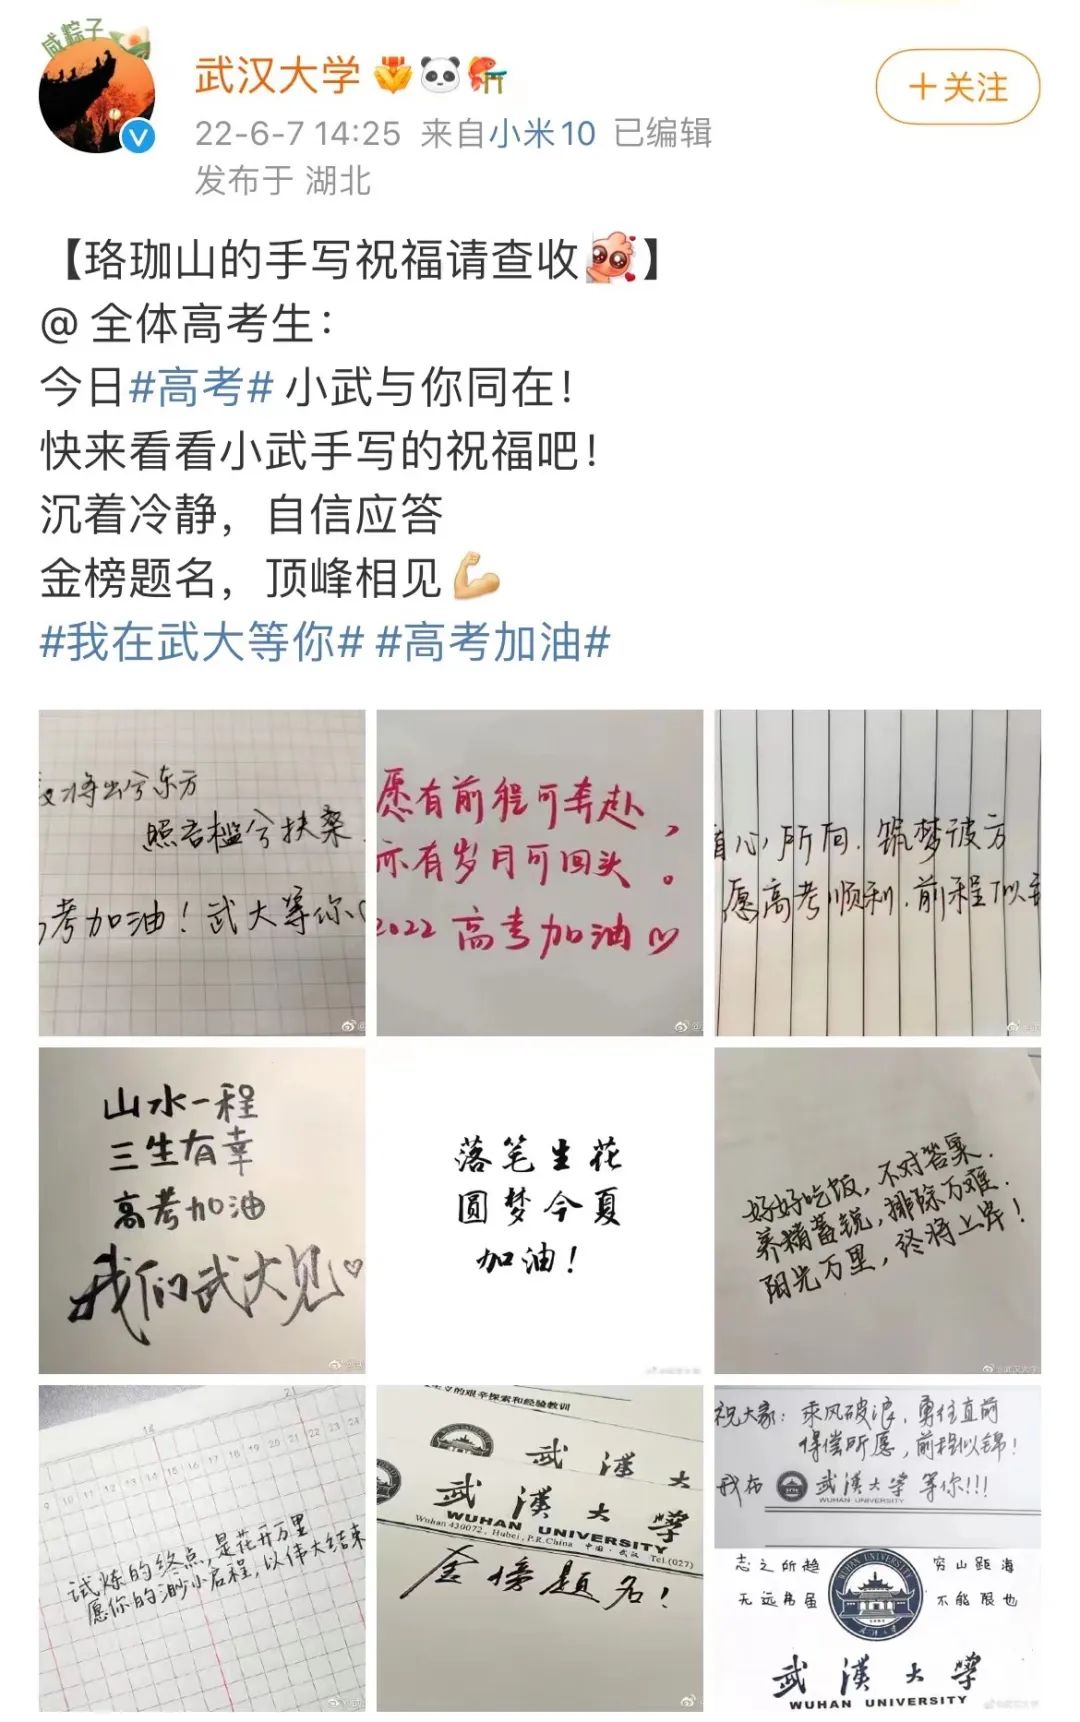 咸粽子
武汉大学
22-6-7 14:25 来自小米10 已编辑
发布于 湖北
+关注
【珞珈山的手写祝福请查收】
@ 全体高考生：
今日#高考# 小武与你同在！
快来看看小武手写的祝福吧！
沉着冷静，自信应答
金榜题名，顶峰相见
#我在武大等你# #高考加油#
将出兮东方
照吾槛兮扶桑
考加油！武大等你
愿有前程可奔赴，
亦有岁月可回头。
2022 高考加油
心所向，筑梦彼方
愿高考顺利，前程似
山水一程
三生有幸
高考加油
我们武大见
落笔生花
圆梦今夏
加油！
好好吃饭，不对答案．
养精蓄锐，排除万难．
阳光万里，终将上岸！
21
14
9 10 11 12 13 14 15 16 17 18 19 20 21 22 23 24
试炼的终点，是花开万里
愿你的渺小启程，以伟大结束
的艰辛探索和经验教训
武漢大
武漢大學
WUHAN UNIVERSITY
Wuhan 430072, Hubei, P.R.China 中国·武汉 Tel.(027)
金榜题名！
祝大家：乘风破浪，勇往直前
得偿所愿，前程似锦！
我在 武漢大學 等你!!!
WUHAN UNIVERSITY
志之所趋 穷山距海
无远弗届 不能限也
武漢大學
WUHAN UNIVERSITY